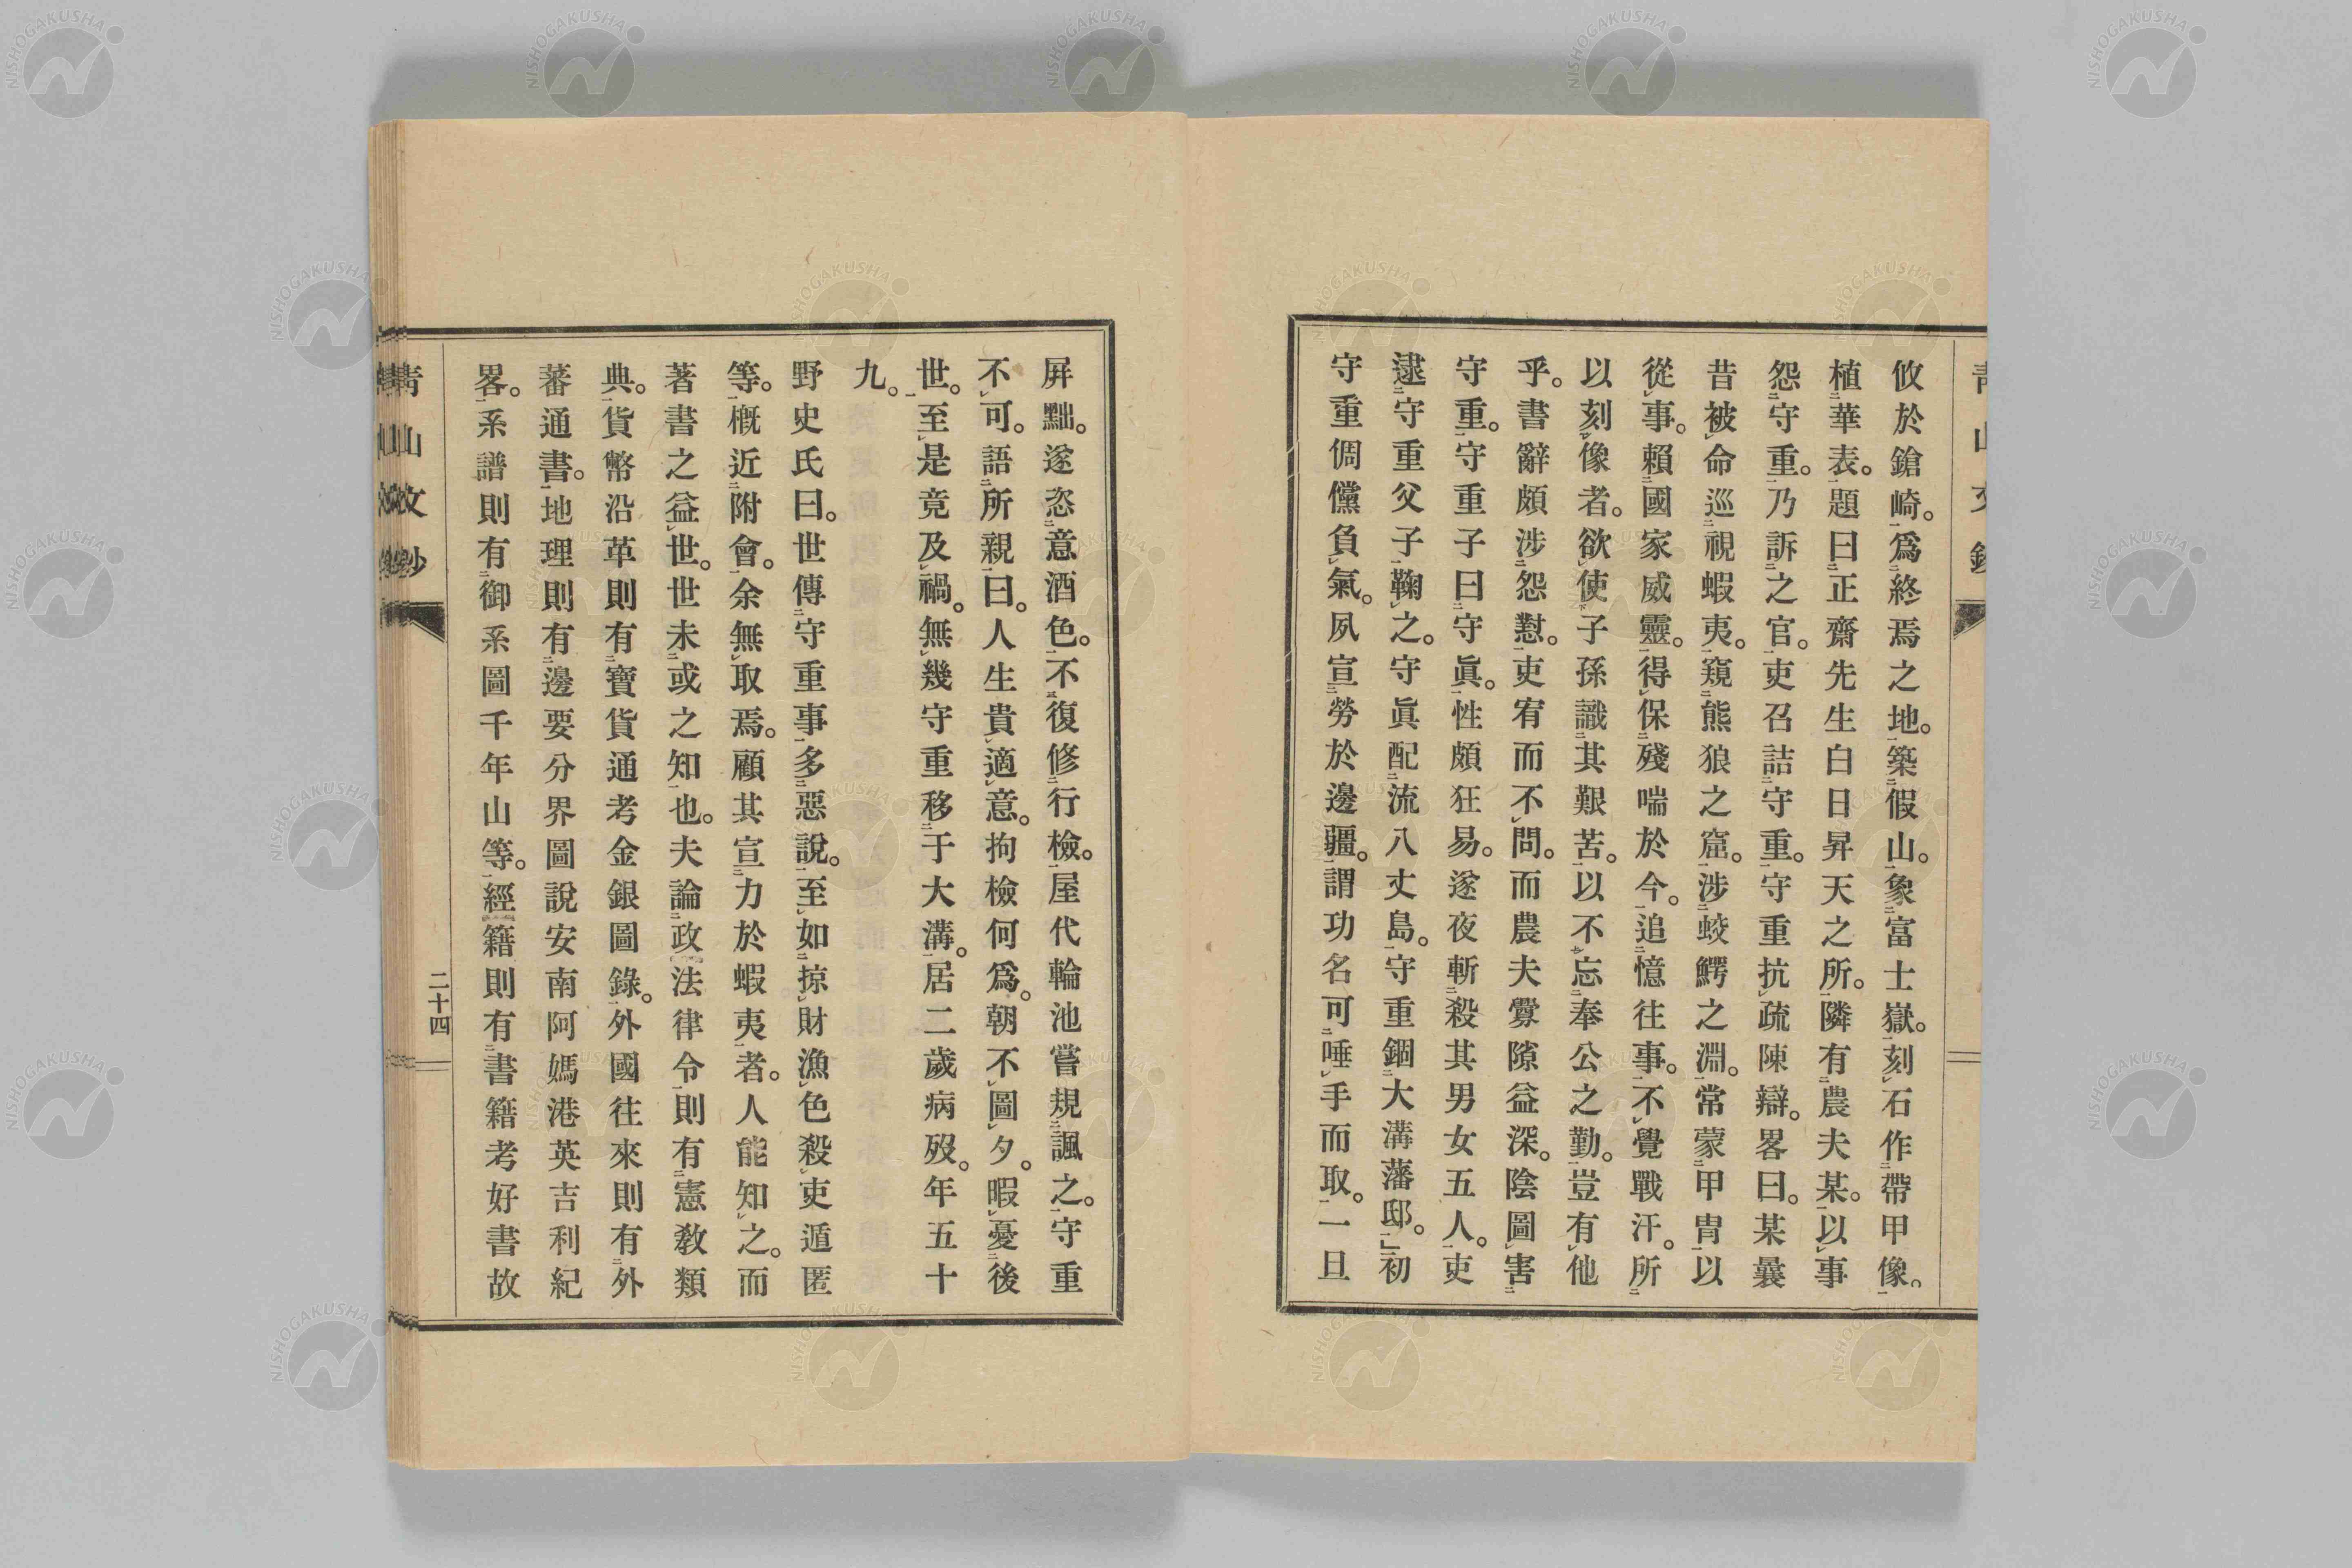 攸於鎗崎。爲終焉之地。築假山。象富士嶽。刻石作帶甲像。
植華表。題曰正齋先生白日昇天之所。隣有農夫某。以事
怨守重。乃訴之官。吏召詰守重。守重抗疏陳辯。畧曰。某曩
昔被命巡視蝦夷。窺熊狼之窟。涉蛟鰐之淵。常蒙甲冑以
從事。賴國家威靈。得保殘喘於今。追憶往事。不覺戰汗。所
以刻像者。欲使子孫識其艱苦。以不忘奉公之勤。豈有他
乎。書辭頗涉怨懟。吏宥而不問。而農夫釁隙益深。陰圖害
守重。守重子曰守眞。性頗狂易。遂夜斬殺其男女五人。吏
逮守重父子鞠之。守眞配流八丈島。守重錮大溝藩邸。初
守重倜儻負氣。夙宣勞於邊疆。謂功名可唾手而取。一旦
屛黜。遂恣意酒色。不復修行檢。屋代輪池嘗規諷之。守重
不可。語所親曰。人生貴適意。拘檢何爲。朝不圖夕。暇憂後
世。至是竟及禍。無幾守重移于大溝。居二歲病歿。年五十
九。
野史氏曰。世傳守重事多惡說。至如掠財漁色殺吏遁匿
等。槪近附會。余無取焉。顧其宣力於蝦夷者。人能知之。而
著書之益世。世未或之知也。夫論政法律令則有憲敎類
典。貨幣沿革則有寶貨通考金銀圖錄。外國往來則有外
蕃通書。地理則有邊要分界圖說安南阿媽港英吉利紀
畧。系譜則有御系圖千年山等。經籍則有書籍考好書故
靑山文鈔
二十四
NISHOGAKUSHA